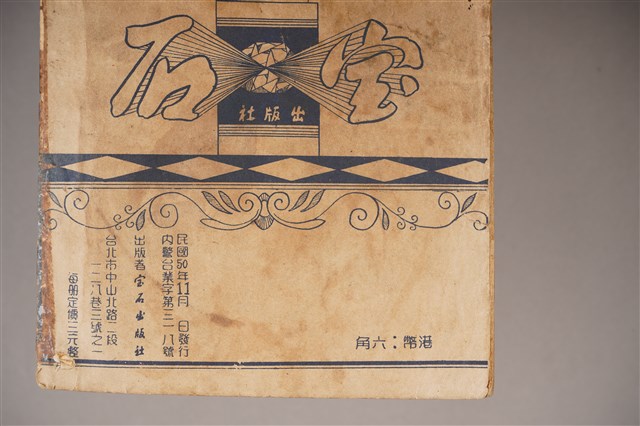 宝石
出版社
民國50年11月 日發行
內警台業字第三一八號
出版者宝石出版社
台北市中山北路二段
一二八巷三號之一
每册定價二元整
港幣：六角